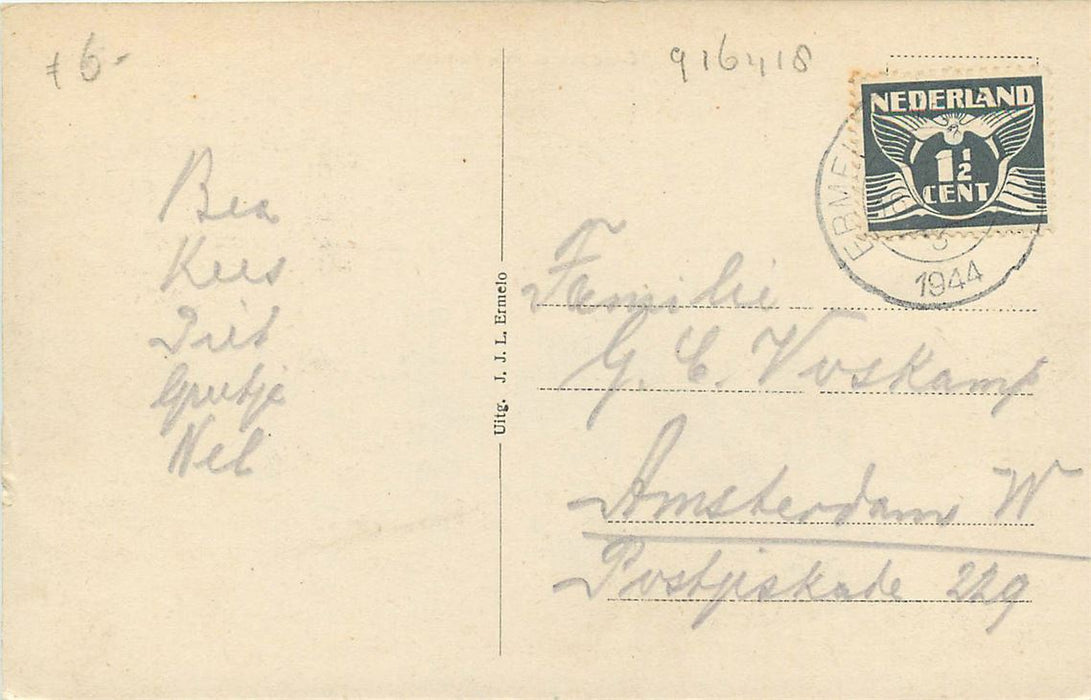 6-
916418
NEDERLAND
1½
CENT
ERMELO
1944
Bea
Kees
Diet
Greetje
Nel
Uitg. J. J. L. Ermelo
Familie
G. C. Voskamp
Amsterdam W
Postjeskade 229